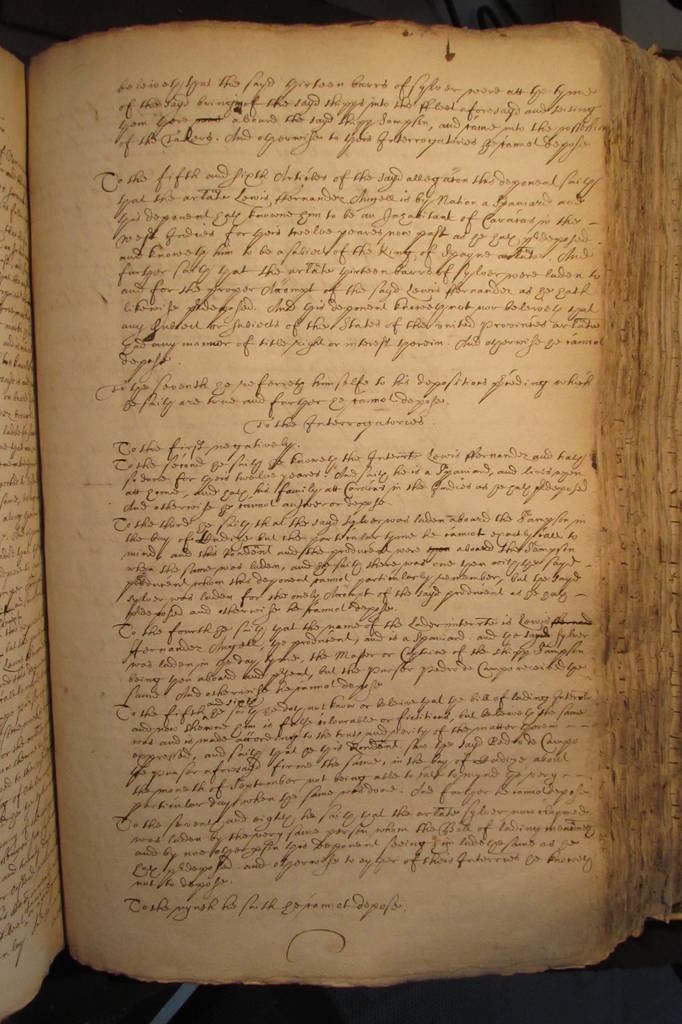 beleiveth that the sayd thirteen barrs of sylver were att the tyme
of the sayd bringing of the sayd shipps into the fleet aforesayd and seising
them were aboard the sayd shipp Sampson, and came into the possession
of the Takers. And otherwise to theis Interrogatories he cannot depose
To the fifth and sixth Articles of the sayd allegacon this deponent saith
that the arlate Lewis ffernandez Angell is by Nation a Spaniard and
this deponent hath knowne him to be an Inhabitant of Caracas in the
West Indies for theis twelve yeares now past as he hath predeposed
and knoweth him to be a subiect of the King of Spayne arlate. And
further saith that the arlate thirteen barrs of sylver were laden to
and for the proper Accompt of the sayd Lewis ffernandez as he hath
likewise predeposed. And this deponent knoweth not nor beleiveth that
any Subiect or Subiects of the States of the united provinces arlate
had any manner of title right or interest therein. And otherwise he cannot
depose.
To the seventh he referreth himselfe to his depositions preceding which
he saith are true and further he cannot depose.
To the Interrogatories
To the first negatively.
To the second he saith he knoweth the Interrte Lewis ffernandez and hath
so done for theis twelve yeares. And saith he is a Spaniard, and lives upon
att home, and hath his family att Caracas in the Indies as he hath predeposed
And otherwise he cannot answer or depose.
To the third he saith that the sayd sylver was laden aboard the Sampson in
the bay of Cadiz but the particular tyme he cannot exactly call to
minde and this Rendent and the producent were aboard the Sampson
when the same was laden, and he saith there was one then with the sayd
producent whom this deponent cannot particularly remember, but the sayd
sylver was laden for the onely Accompt of the sayd producent as he hath
predeposed and otherwise he cannot depose.
To the fourth he saith that the name of the Lader interrte is Lewis ffernand
ffernandez Angell, the producent, and is a Spaniard. and the sayd sylver
was laden in the day tyme, the Master or Captaine of the shipp Sampson
being then aboard and present, but the purser Pedro de Campo received the
same. And otherwise he cannot depose
To the fifth and sixth he saith he doth not know or beleive that the bill of lading Interrte
and now shewne him is colourable or fictitious, but beleiveth the same
was and is made according to the truth and verity of the matter therein
expressed, and saith that he this Rendent saw the sayd Pedro de Campo
the purser aforesayd firme the same, in the bay of Cadiz about
the month of September not being able to call to mynd the very
particular day when the same was done. And further he cannot depose
To the seventh and eighth he saith that the arlate sylver now claymed
was laden by the very same person whom the Bill of lading menconeth
and by noe other person this Deponent seeing him lade the same as he
hath predeposed. and otherwise to eyther of theis Interries he knoweth
not to depose.
To the nynth he saith he cannot depose.